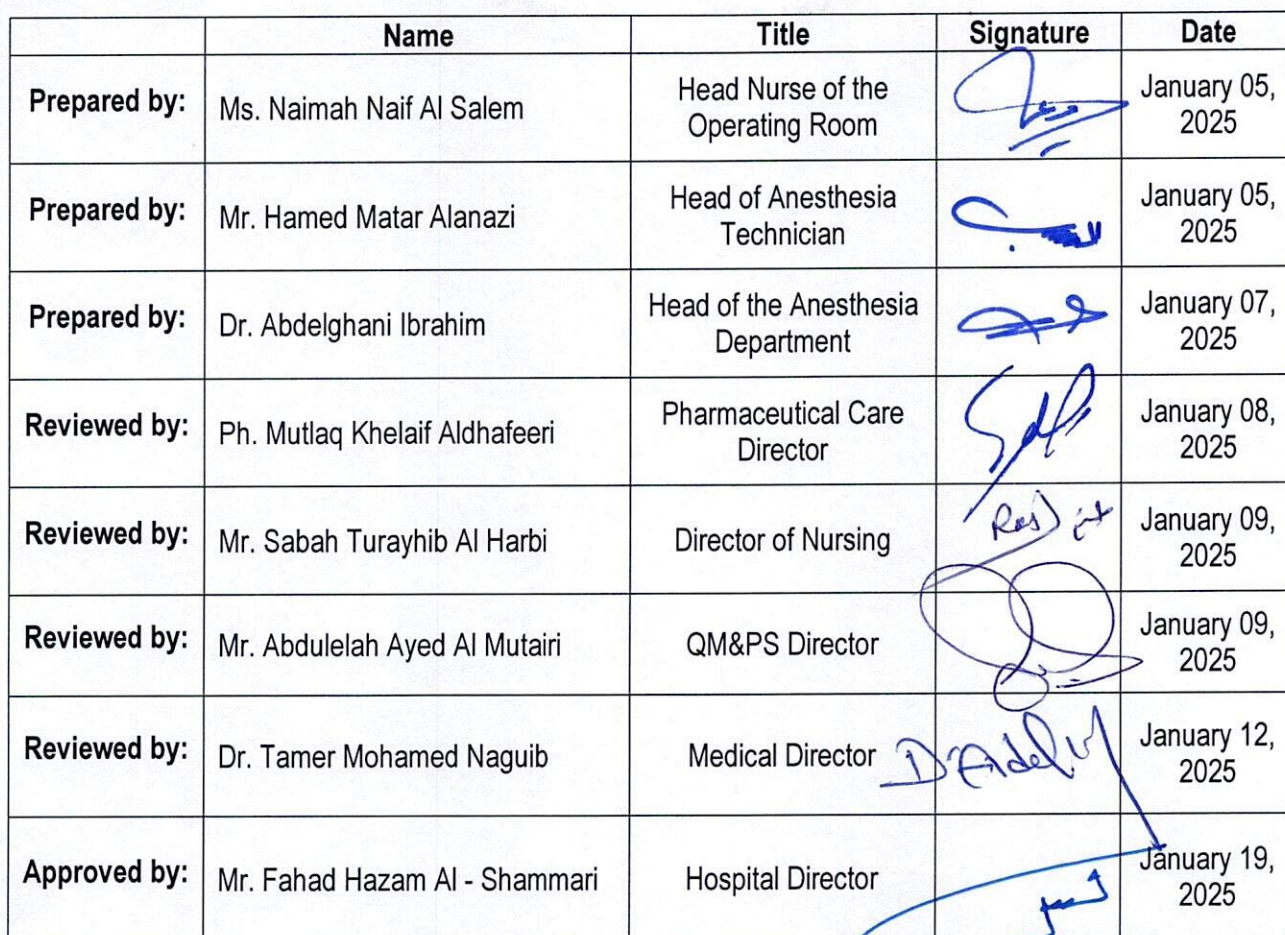 Name Title Signature Date
Prepared by: Ms. Naimah Naif Al Salem Head Nurse of the Operating Room January 05, 2025
Prepared by: Mr. Hamed Matar Alanazi Head of Anesthesia Technician January 05, 2025
Prepared by: Dr. Abdelghani Ibrahim Head of the Anesthesia Department January 07, 2025
Reviewed by: Ph. Mutlaq Khelaif Aldhafeeri Pharmaceutical Care Director January 08, 2025
Reviewed by: Mr. Sabah Turayhib Al Harbi Director of Nursing January 09, 2025
Reviewed by: Mr. Abdulelah Ayed Al Mutairi QM&PS Director January 09, 2025
Reviewed by: Dr. Tamer Mohamed Naguib Medical Director January 12, 2025
Approved by: Mr. Fahad Hazam Al - Shammari Hospital Director January 19, 2025